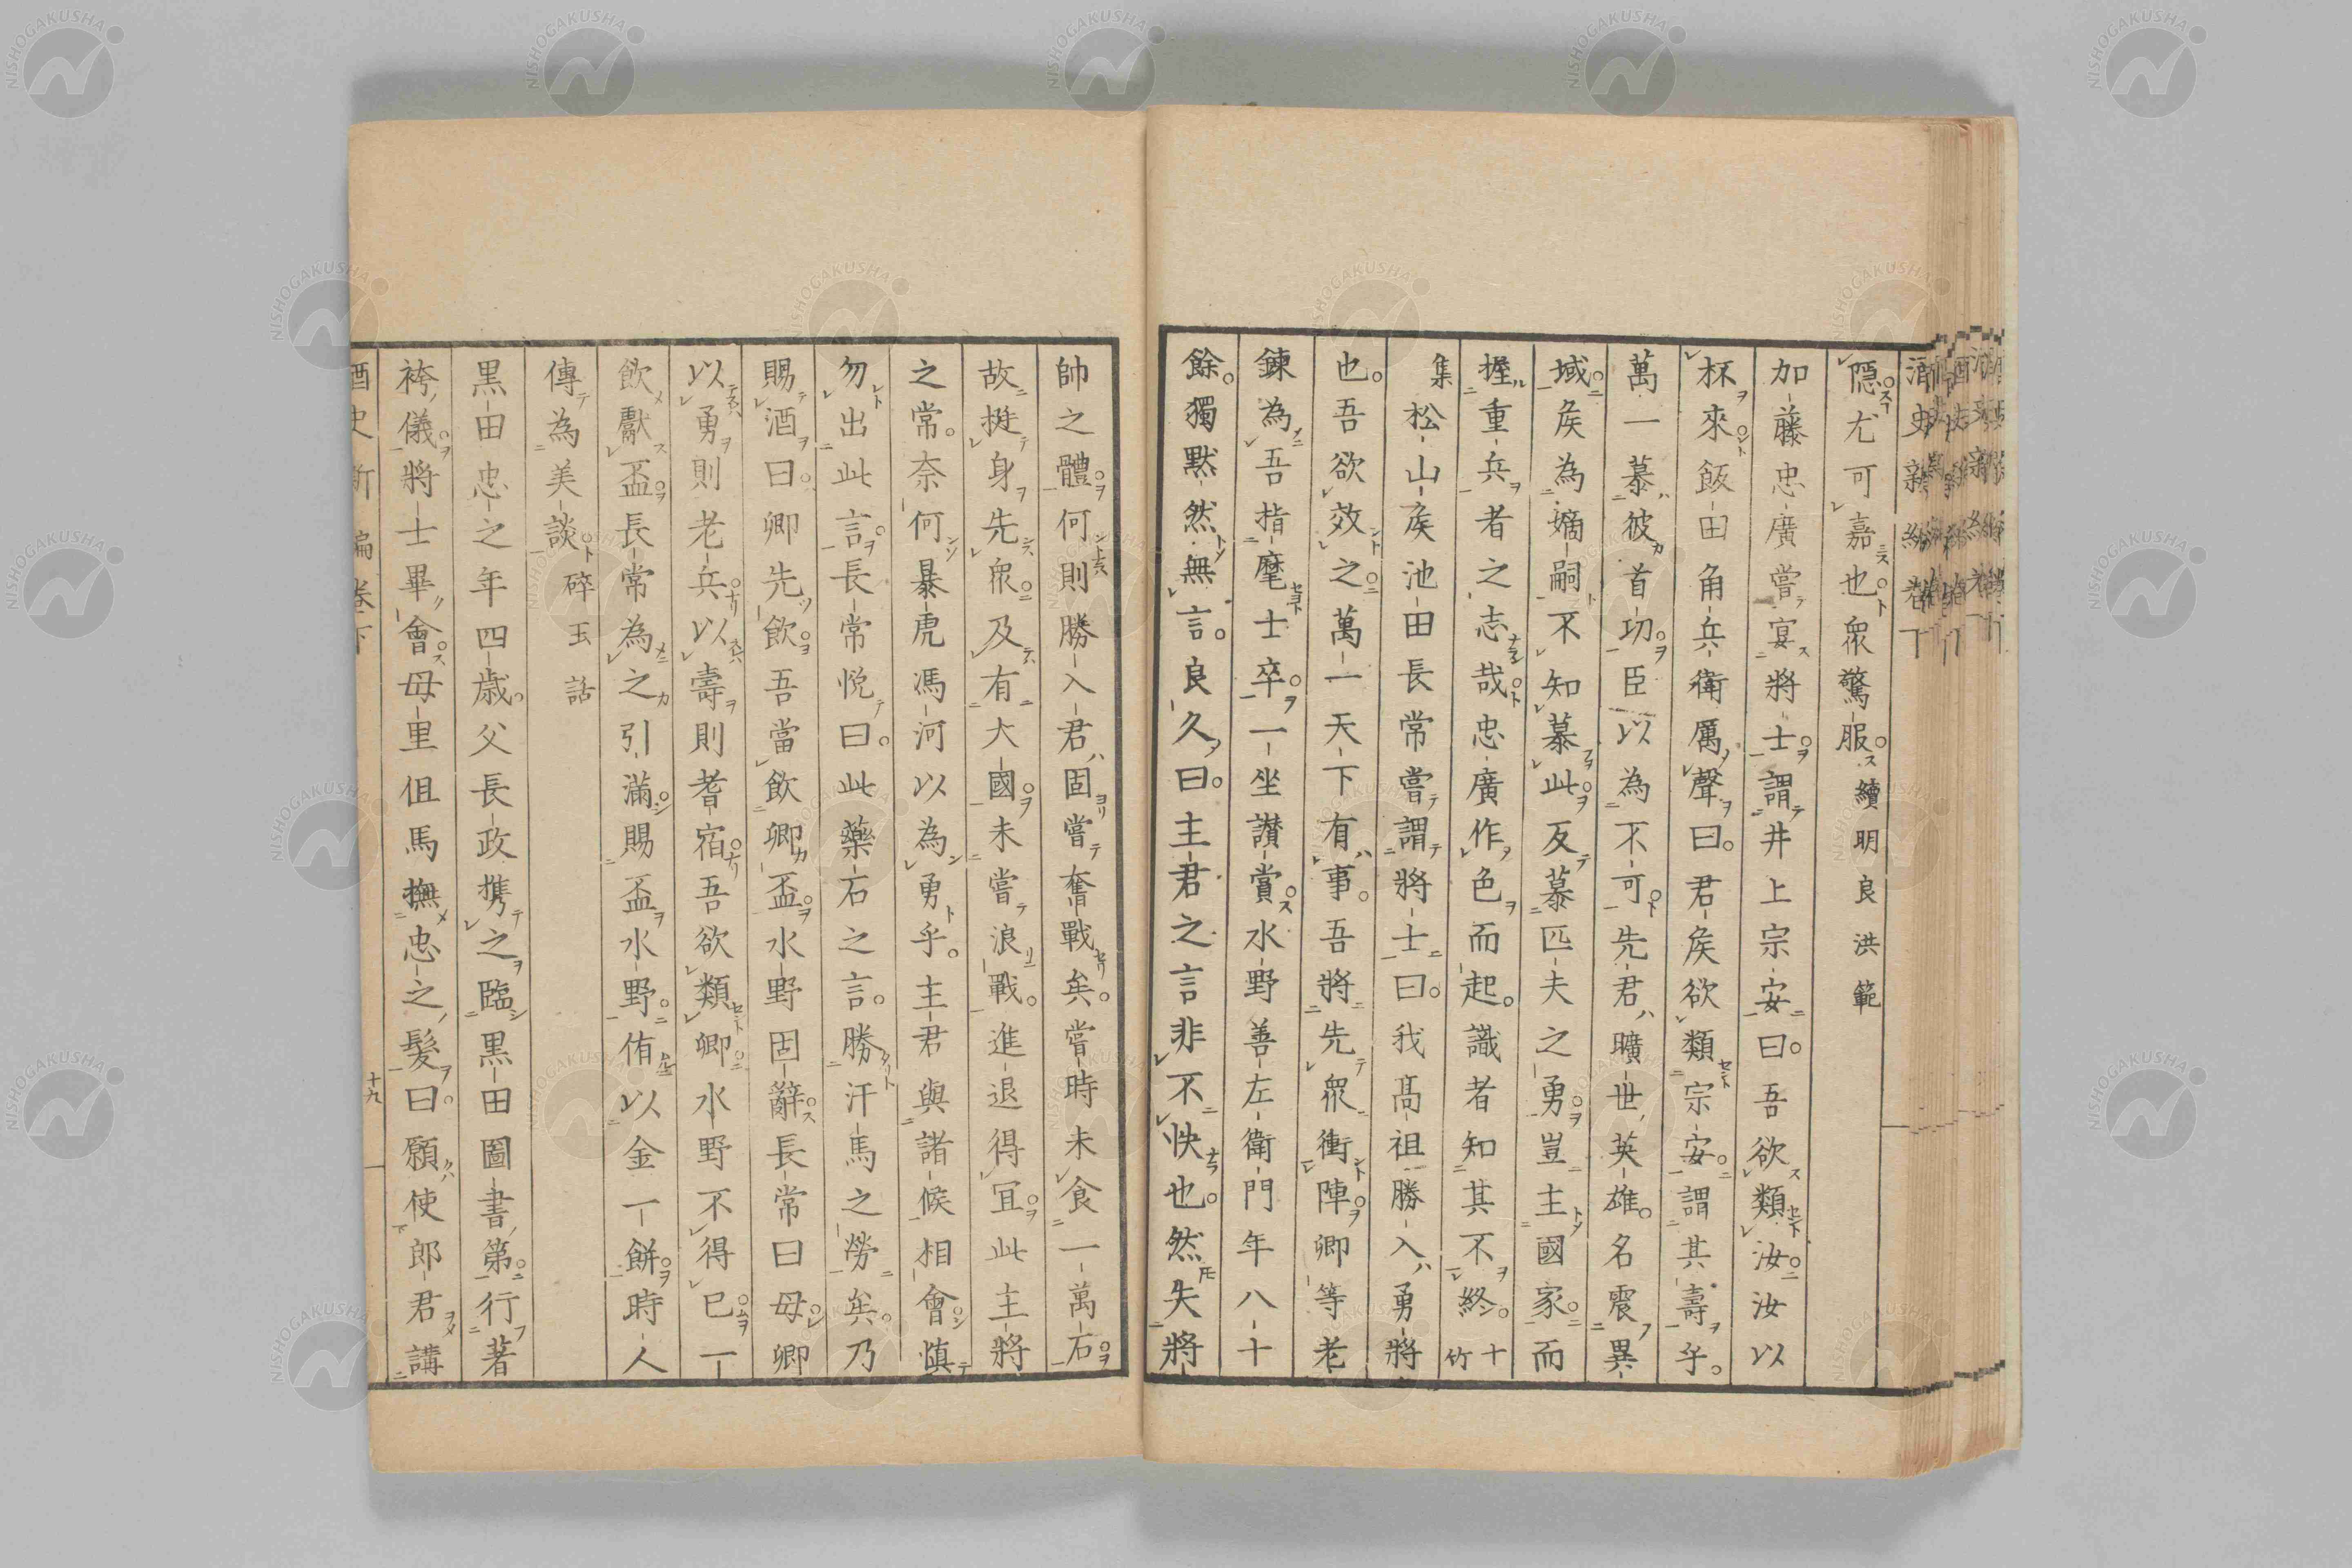 隠尤可嘉也衆驚服續明良洪範
加藤忠廣嘗宴將士謂井上宗安曰吾欲類汝汝以
杯來飯田角兵衛厲聲曰君矦欲類宗安謂其壽乎
萬一慕彼首功臣以為不可先君曠世英雄名震異
域矦為嫡嗣不知慕此反慕匹夫之勇豈主國家而
握重兵者之志哉忠廣作色而起識者知其不終十竹
集松山矦池田長常嘗謂將士曰我高祖勝入勇將
也吾欲效之萬一天下有事吾將先衆衝陣卿等老
鍊為吾指麾士卒一坐讃賞水野善左衛門年八十
餘獨默然無言良久曰主君之言非不快也然失將
帥之體何則勝入君固嘗奮戰矣當時未食一萬石
故挺身先衆及有大國未嘗浪戰進退得冝此主將
之常奈何暴虎馮河以為勇乎主君與諸候相會慎
勿出此言長常悦曰此藥石之言勝汗馬之勞矣乃
賜酒曰卿先飲吾當飲卿盃水野固辭長常曰母卿
以勇則老兵以壽則耆宿吾欲類卿水野不得已一
飲獻盃長常為之引滿賜盃水野侑以金一餅時人
傳為美談碎玉話
黒田忠之年四歳父長政携之臨黒田圖書第行著
袴儀將士畢會母里但馬撫忠之髮曰願使郎君講
酒史新編卷下
十九